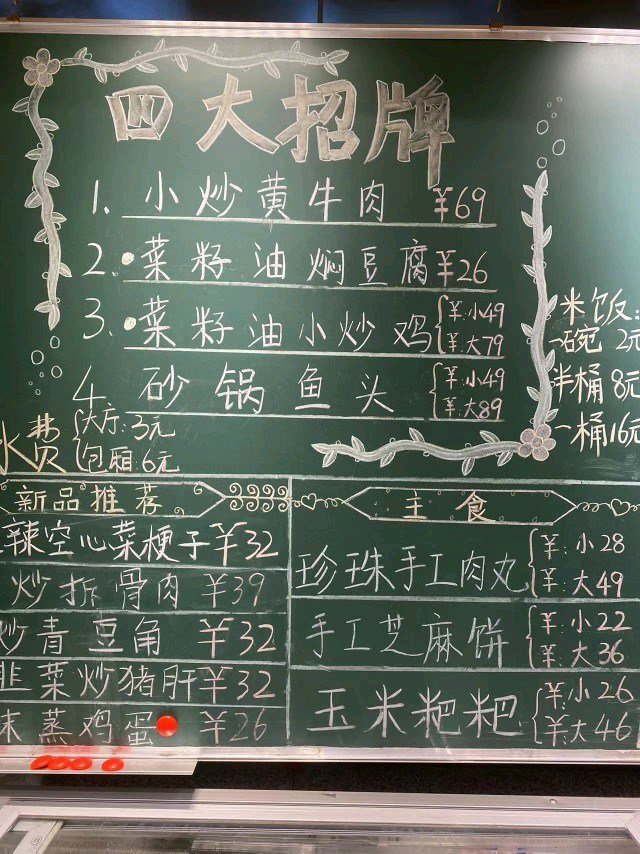 四大招牌
1. 小炒黄牛肉 ¥69
2. 菜籽油焖豆腐 ¥26
3. 菜籽油小炒鸡 ¥:小49 ¥:大79
4 砂锅鱼头 ¥:小49 ¥:大89
米饭:
一碗 2元
半桶 8元
一桶 16元
水费 大厅:3元 包厢 6元
新品推荐
辣空心菜梗子 ¥32
炒拆骨肉 ¥39
炒青豆角 ¥32
韭菜炒猪肝 ¥32
末蒸鸡蛋 ¥26
主食
珍珠手工肉丸 ¥:小28 ¥:大49
手工芝麻饼 ¥:小22 ¥:大36
玉米粑粑 ¥:小26 ¥:大46